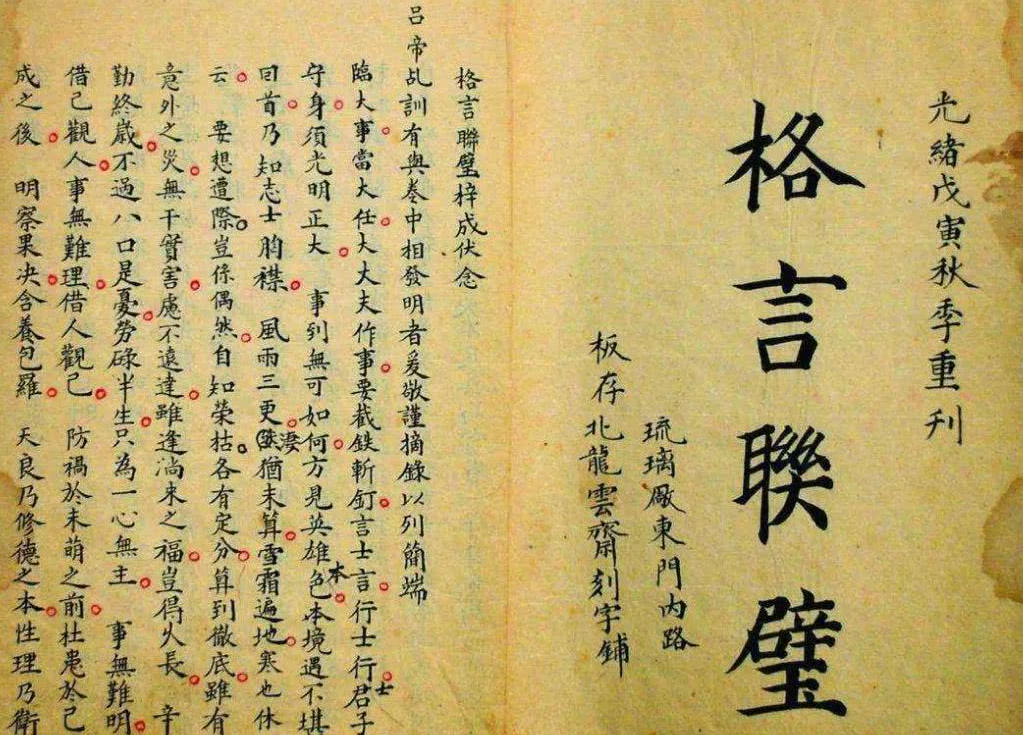 光緒戊寅秋季重刊
格言聯璧
琉璃厰東門內路
板存北龍雲齋刻字鋪
格言聯璧梓成伏念
呂帝乩訓有與巻中相發明者爰敬謹摘錄以列簡端
臨大事當大任大大夫作事要截鉄斬釘言士言行士行君子
士
守身須光明正大 事到無可如何方見英雄色本境遇不堪
本
回首乃知志士胸襟 風雨三更猶未算雪霜遍地寒也休
淒
云 要想遭際豈係偶然自知榮枯各有定分算到徹底雖有
意外之災無干實害慮不遠達雖逢淌来之福豈得乆長 辛
勤終歲不過八口是憂勞碌半生只為一心無主 事無難明
借己觀人事無難理借人觀己 防禍於未萌之前杜患於己
成之後 明察果决含養包羅 天良乃修德之本性理乃衛